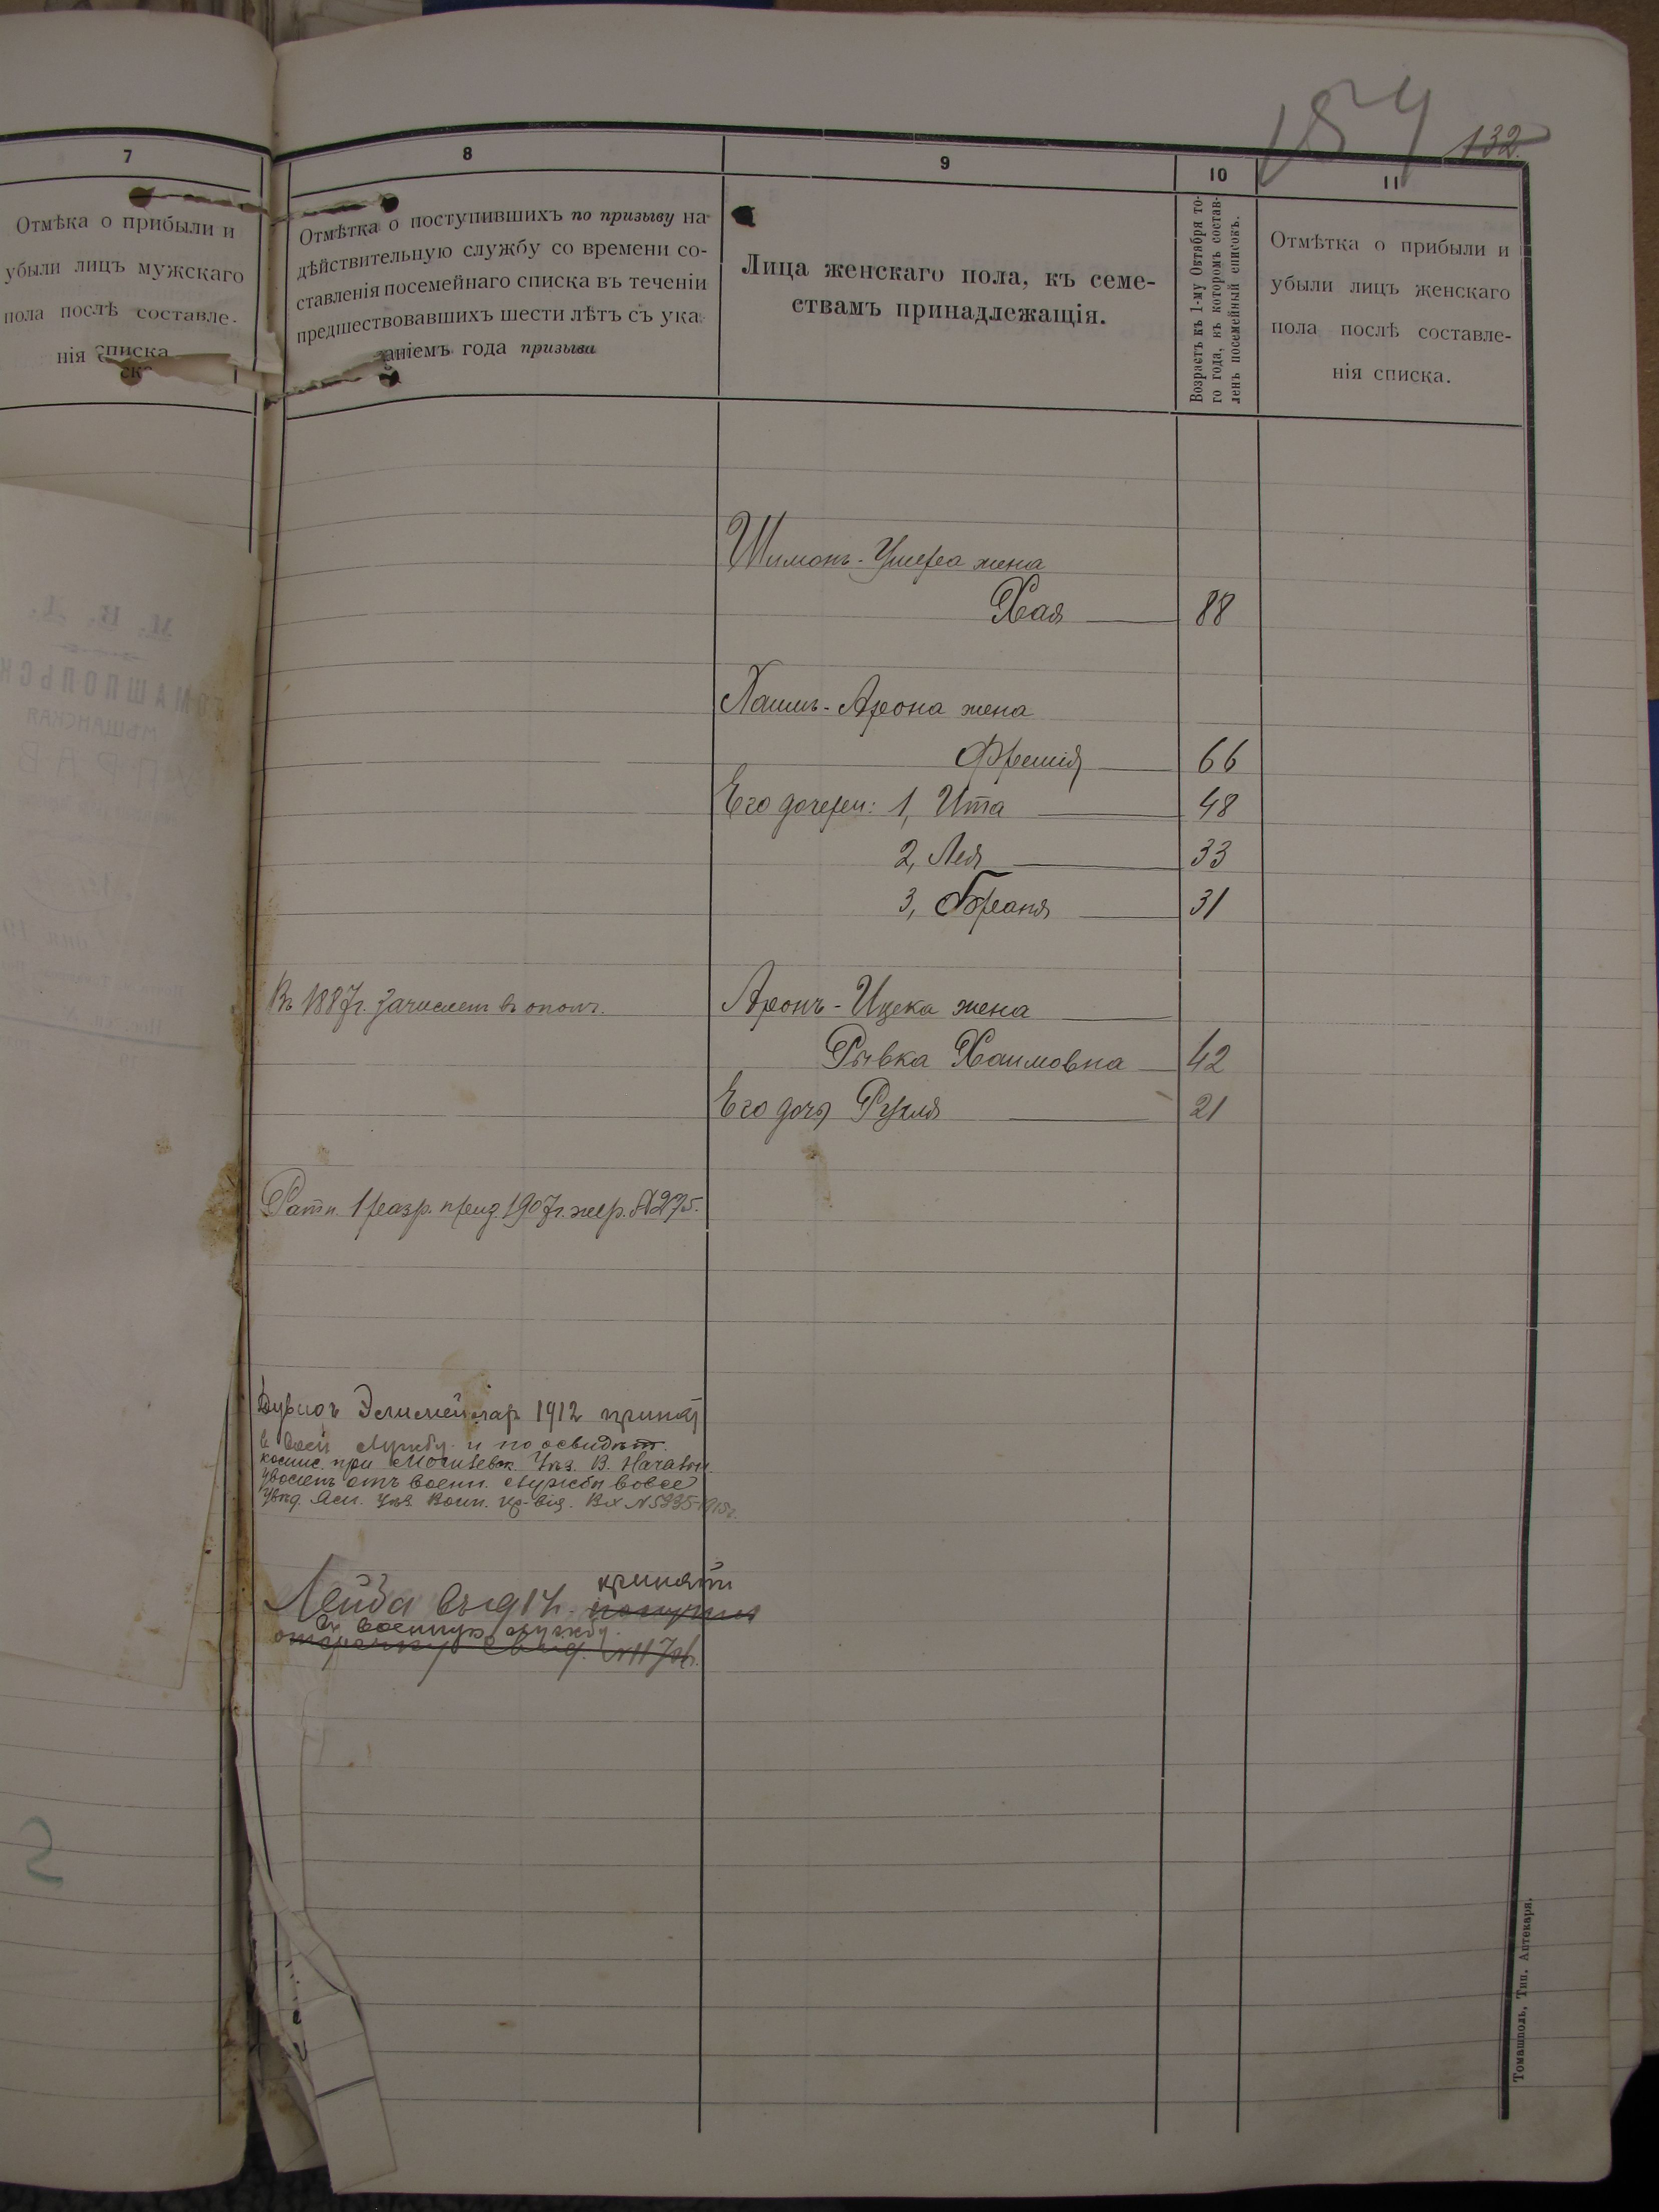 154
132.
7
8
9
10
11
Отмѣка о прибыли и
убыли лицъ мужскаго
пола послѣ составле-
нія списка
Отмѣтка о поступившихъ по призыву на
дѣйствительную службу со времени со-
ставленія посемейнаго списка въ теченіи
предшествовавшихъ шести лѣтъ съ ука
заніемъ года призыва
Лица женскаго пола, къ семе-
ствамъ принадлежащія.
Возрастъ къ 1-му Октября то-
го года, къ которомъ состав-
ленъ посемейный списокъ.
Отмѣтка о прибыли и
убыли лицъ женскаго
пола послѣ составле-
нія списка.
Шимонъ-Ушера жена
Хая 88
Хаимъ-Арона жена
Фрешія 66
Его дочери: 1, Ита 48
2, Лея 33
3, Браня 31
Въ 1887г. зачислен въ ополч.
Аронъ-Ицека жена
Рывка Хаимовна 42
Его дочь Рухля 21
Ратн. 1 разр. приз. 1907г. жер. №275.
Дувидъ Элимейлар 1912 принят
в воен службу и по освидѣт.
комис. при Могилевск. Уѣз. В. Начальн.
уволенъ отъ воен. службы вовсе
увѣд. Ям. Уѣз. Воин. Вх №5935-1915г.
Лейба въ 1914. принятъ
въ военную службу.
отсрочку свид.
Томашполь, Тип. Аптекаря.